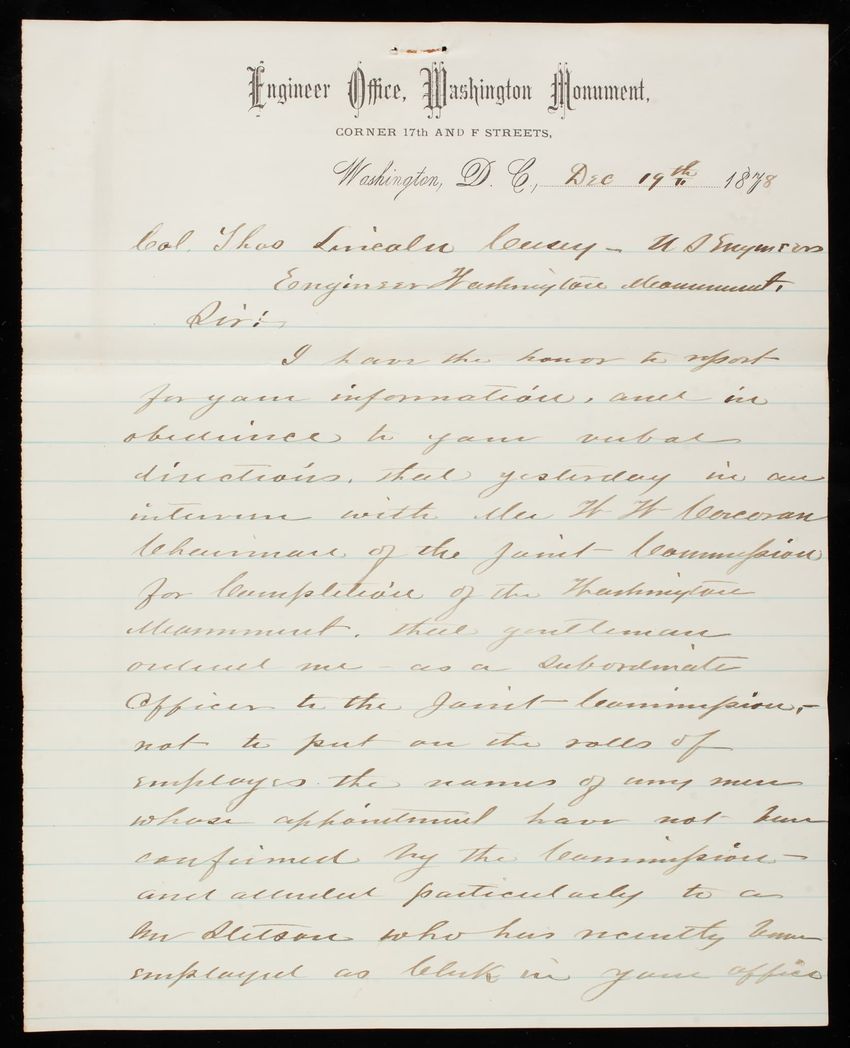 Engineer Office, Washington Monument,
CORNER 17th AND F STREETS,
Washington, D. C., Dec 19th 1878
Col. Thos Lincoln Casey - U S Engineers
Engineer Washington Monument.
Sir:
I have the honor to report
for your information, and in
obedience to your verbal
directions, that yesterday in an
interview with Mr W W Corcoran
Chairman of the Joint Commission
for Completion of the Washington
Monument, that gentleman
ordered me - as a subordinate
Officer to the Joint Commission, -
not to put on the rolls of
employes the names of any men
whose appointment have not been
confirmed by the Commission -
and alluded particularly to a
Mr Stetson who has recently been
employed as Clerk in your office